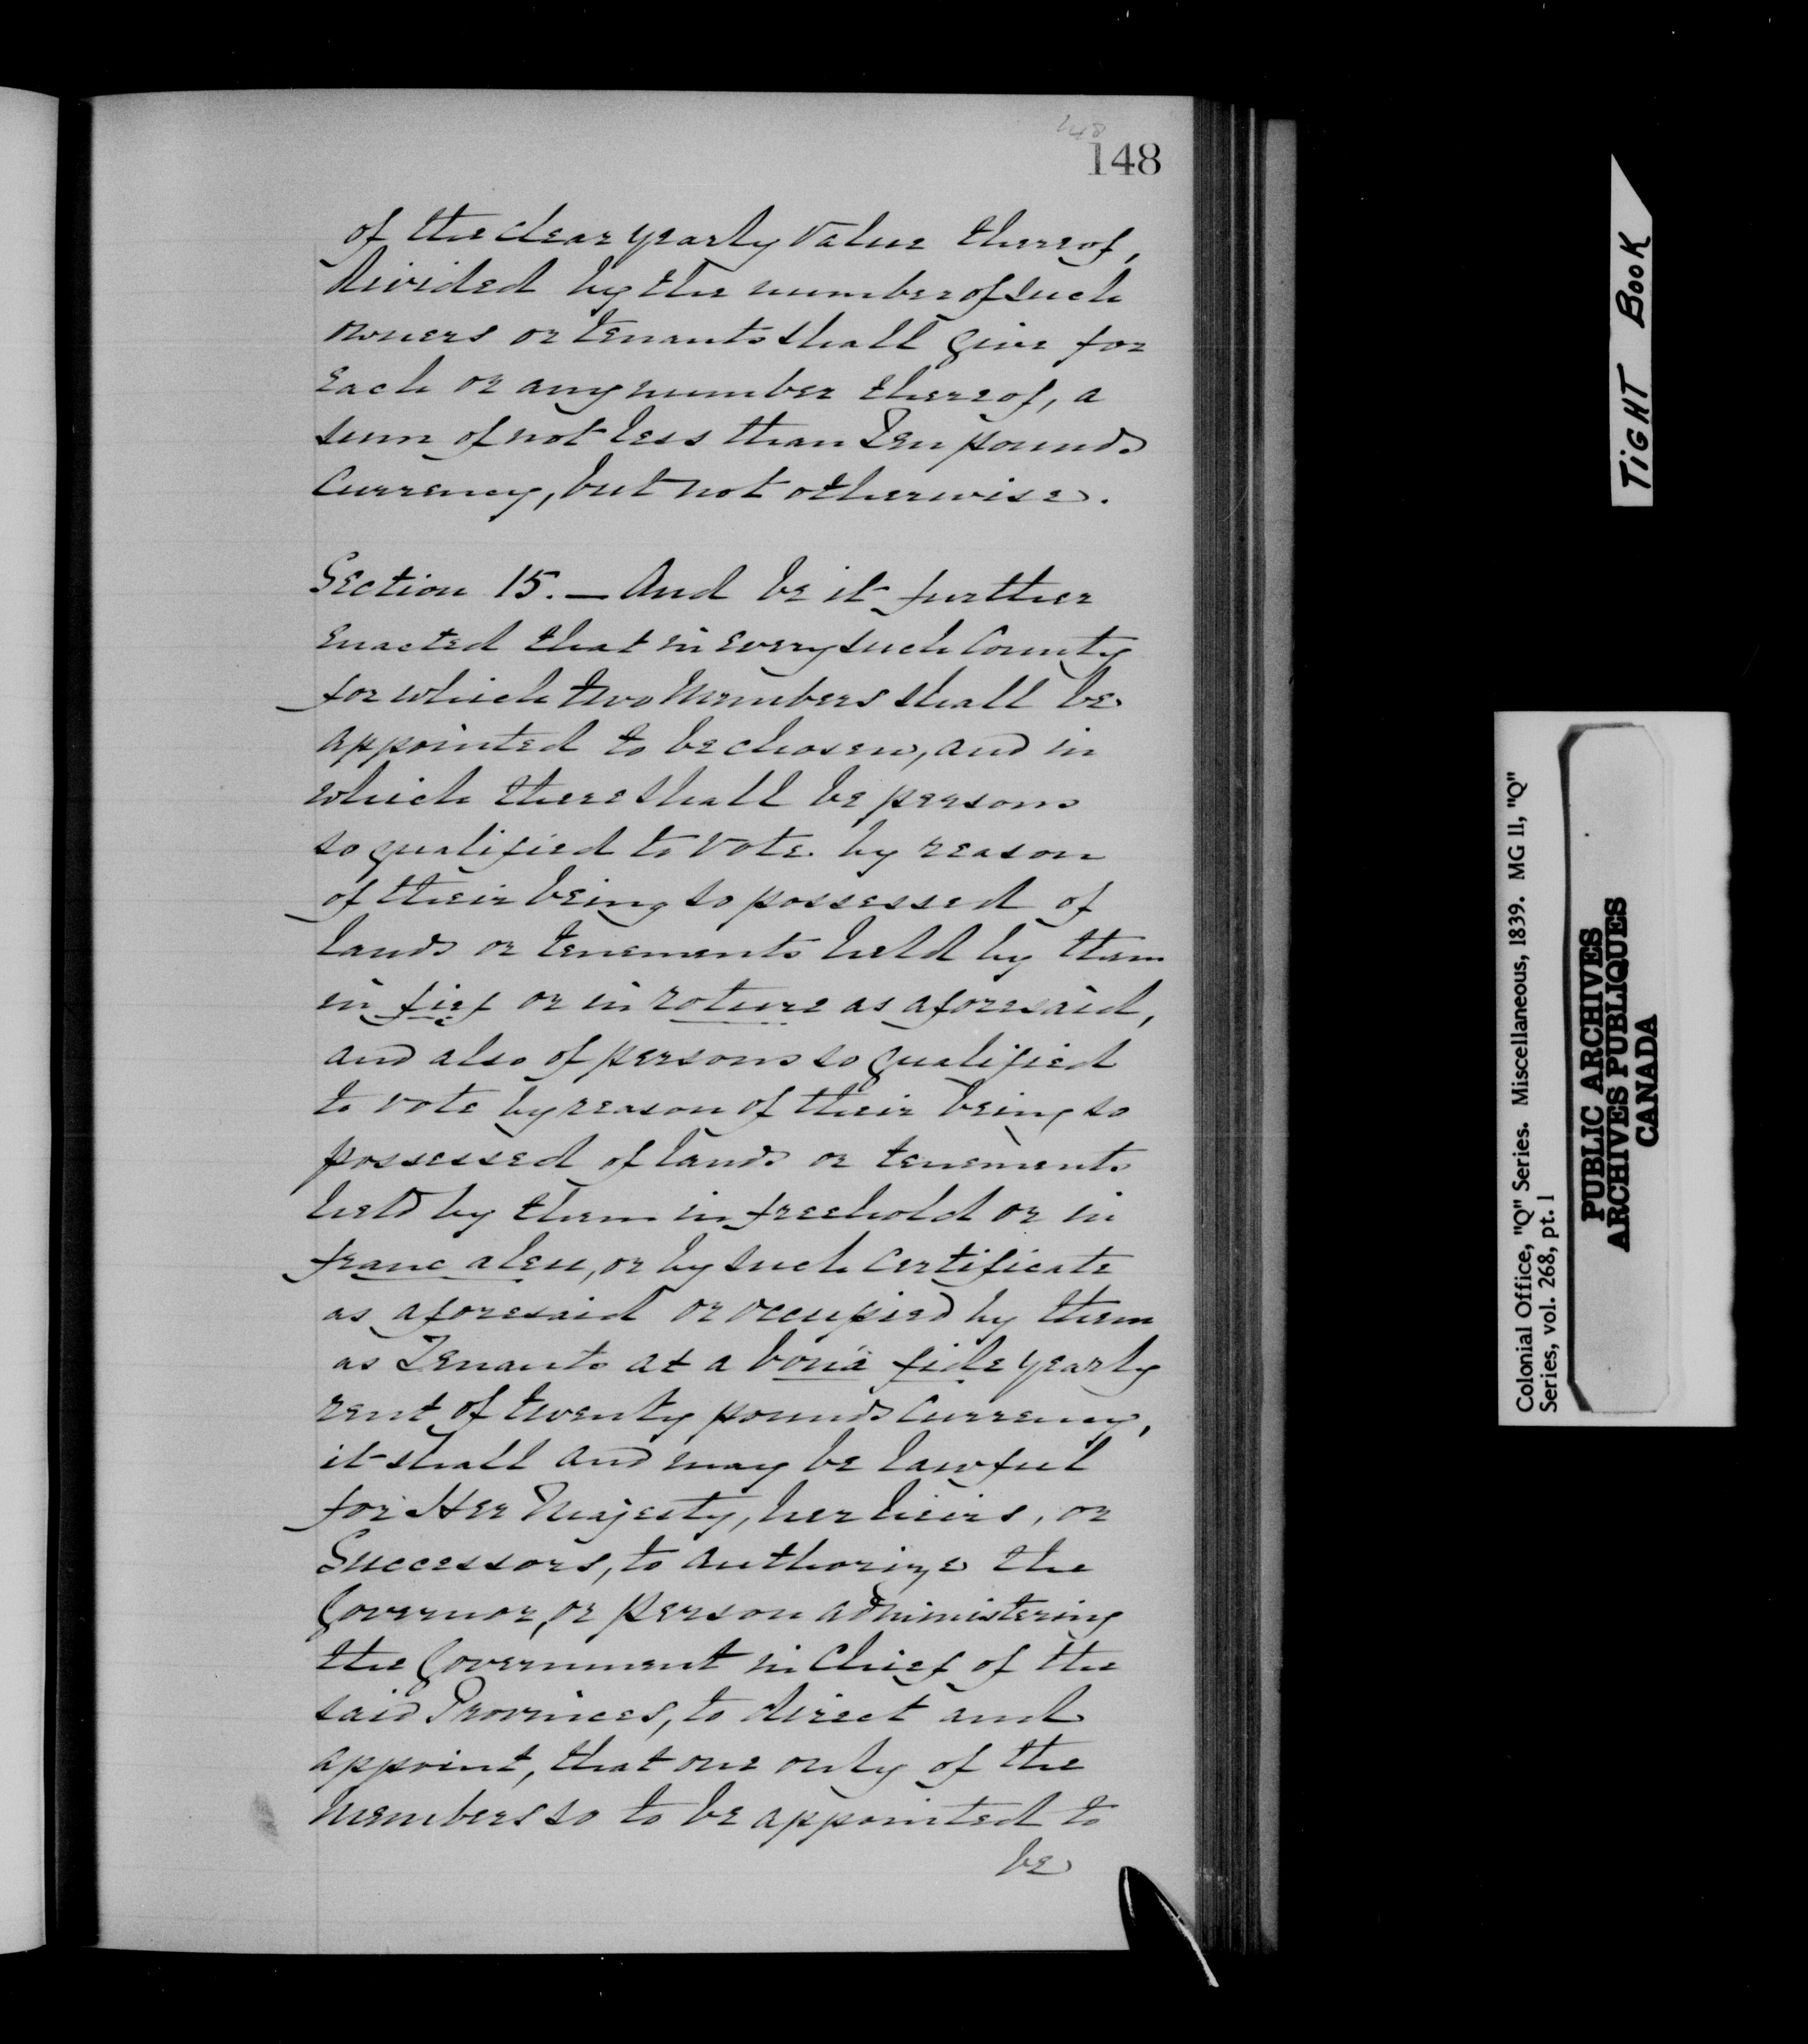 148
148
of the clear yearly value thereof,
divided by the number of such
owners or tenants shall give for
each or any number thereof, a
sum of not less than Ten pounds
Currency, but not otherwise.
Section 15. — And be it further
enacted that in every such County
for which two Members shall be
appointed to be chosen, and in
which there shall be persons
so qualified to vote by reason
of their being so possessed of
lands or tenements held by them
in fief or in roture as aforesaid,
and also of persons so qualified
to vote by reason of their being so
possessed of lands or tenements
held by them in freehold or in
franc aleu, or by such certificate
as aforesaid or occupied by them
as Tenants at a bonâ fide yearly
rent of twenty pounds Currency,
it shall and may be lawful
for Her Majesty, her heirs, or
Successors, to authorize the
Governor, or person administering
the Government in Chief of the
said Provinces, to direct and
appoint, that one only of the
Members so to be appointed to
be
TIGHT BOOK
Colonial Office, "Q" Series. Miscellaneous, 1839. MG 11, "Q"
Series, vol. 268, pt. 1
PUBLIC ARCHIVES
ARCHIVES PUBLIQUES
CANADA